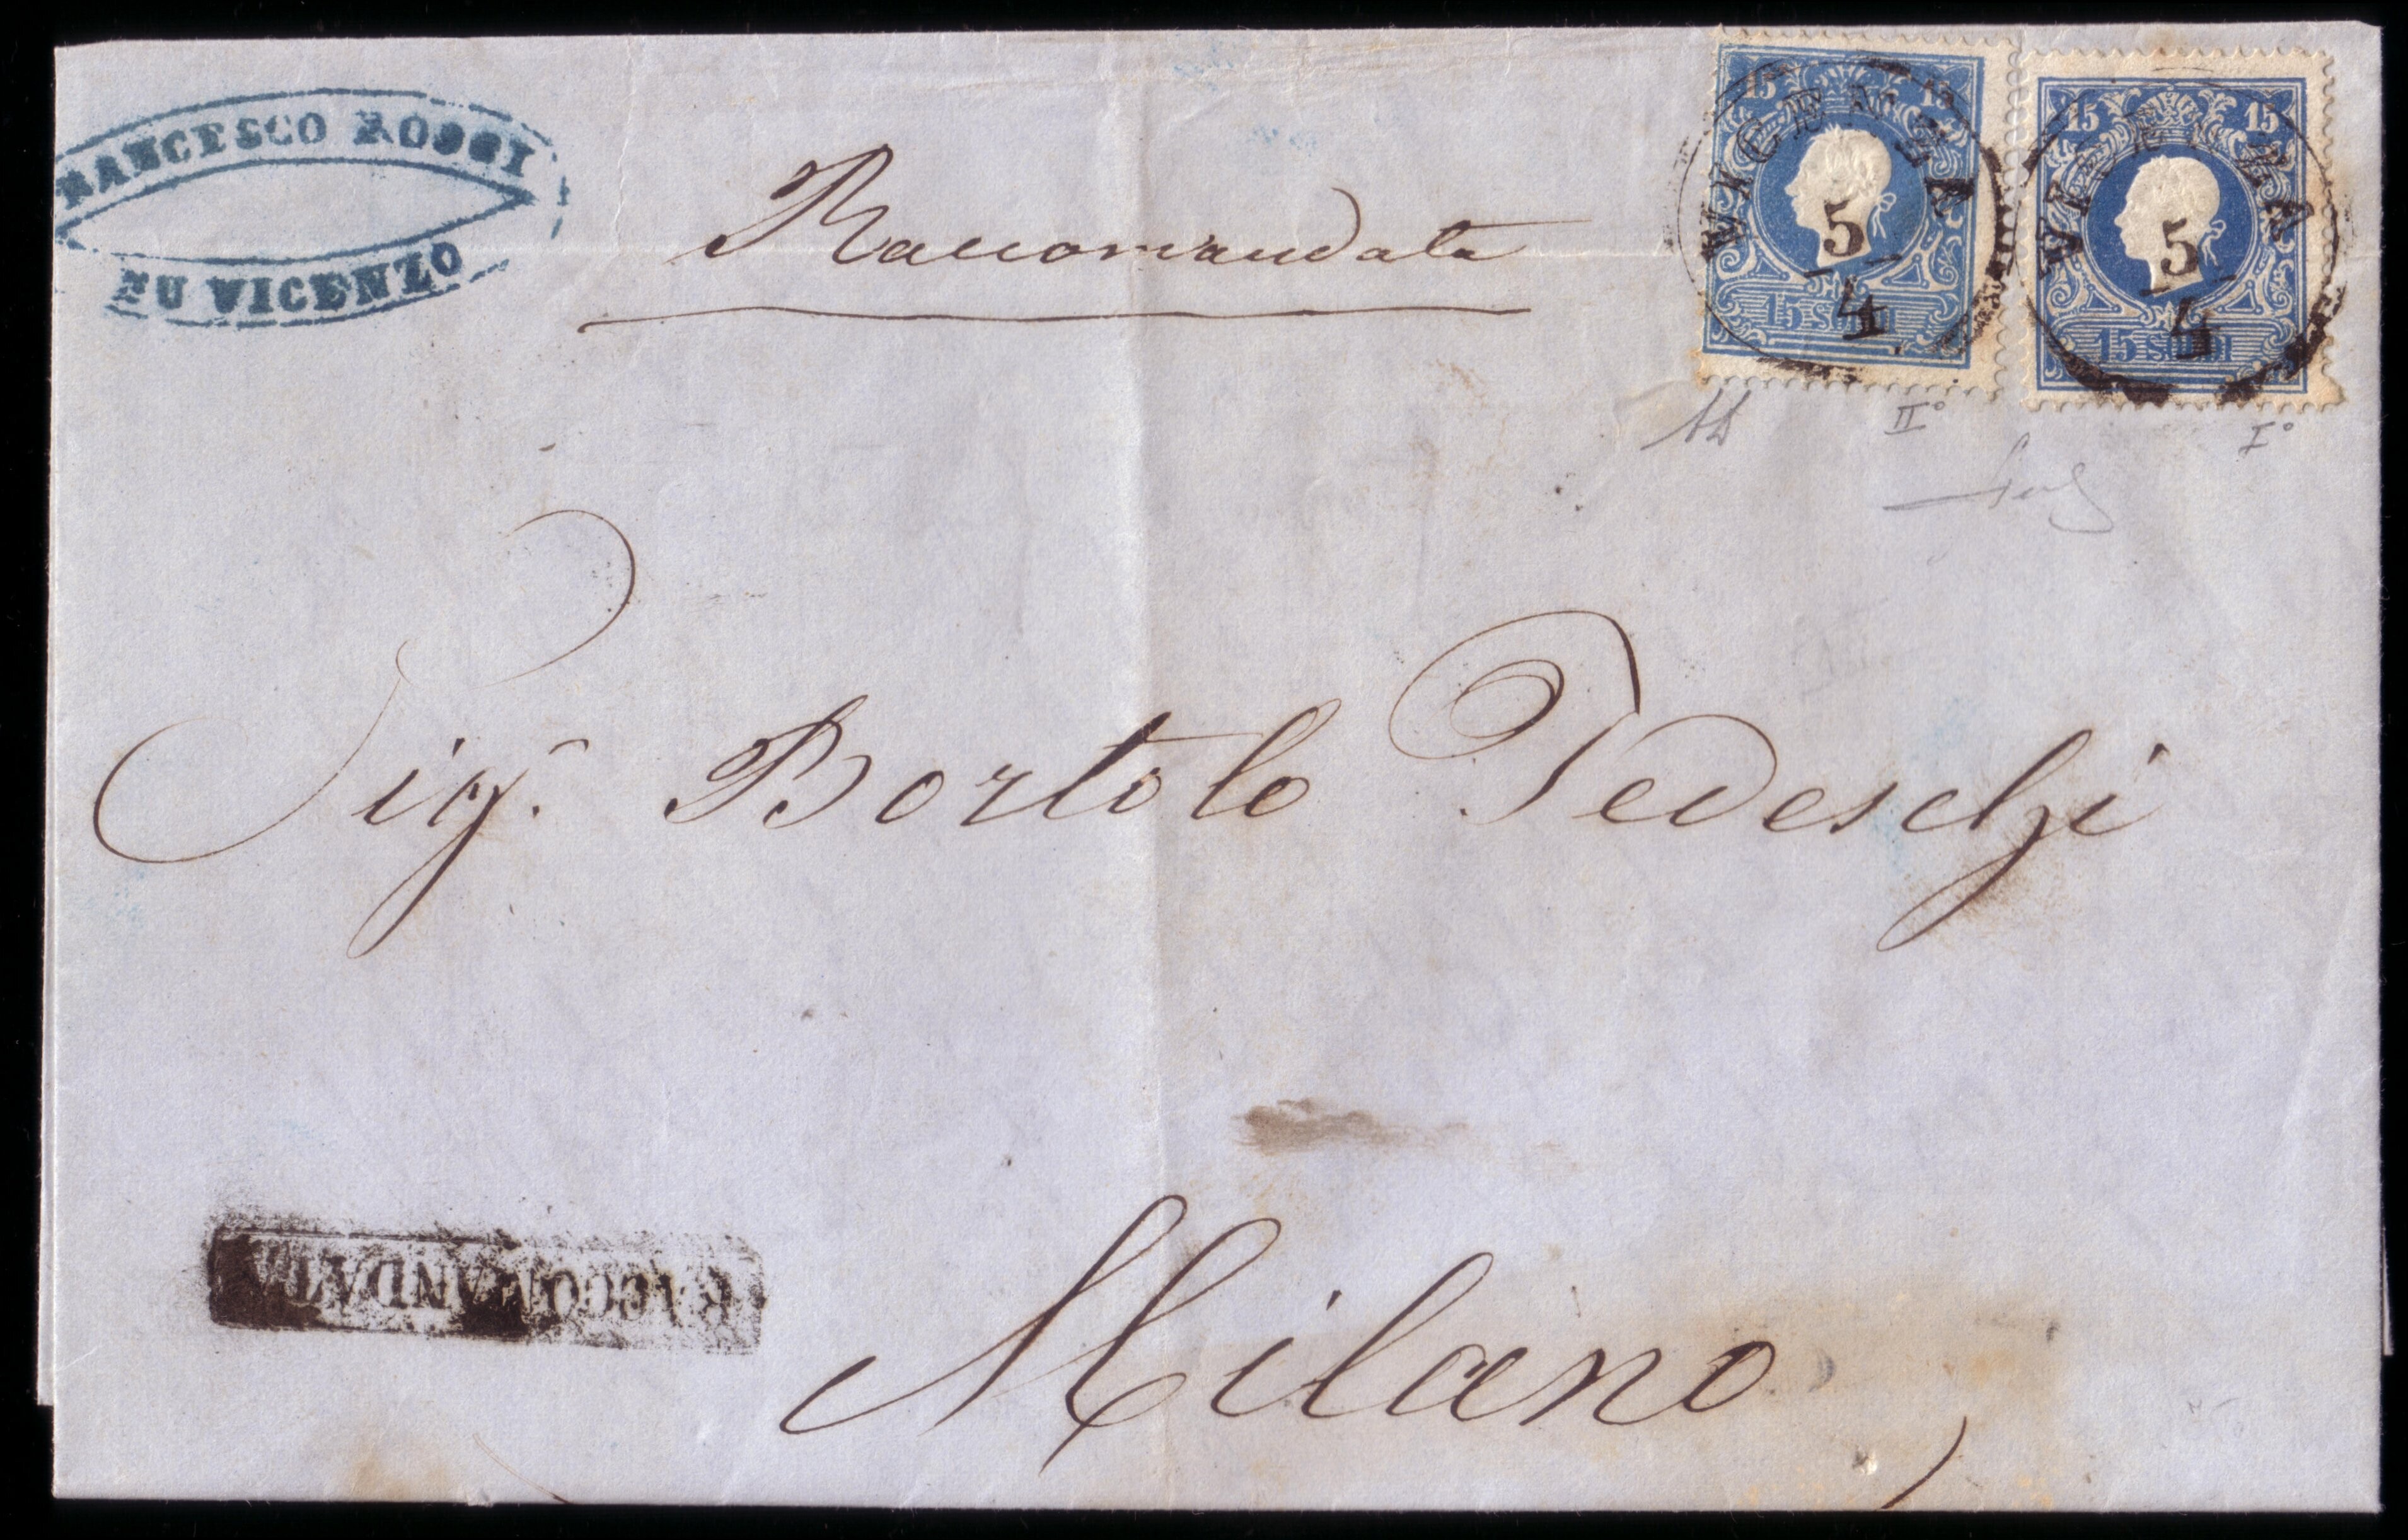 RANCESCO ROSSI
FU VICENZO
Raccomandata
15 15
VICENZA
5
4
15 SOLDI
15 15
VICENZA
5
4
15 SOLDI
II° I°
Sigr. Bortolo Tedeschi
RACCOMANDATA
Milano